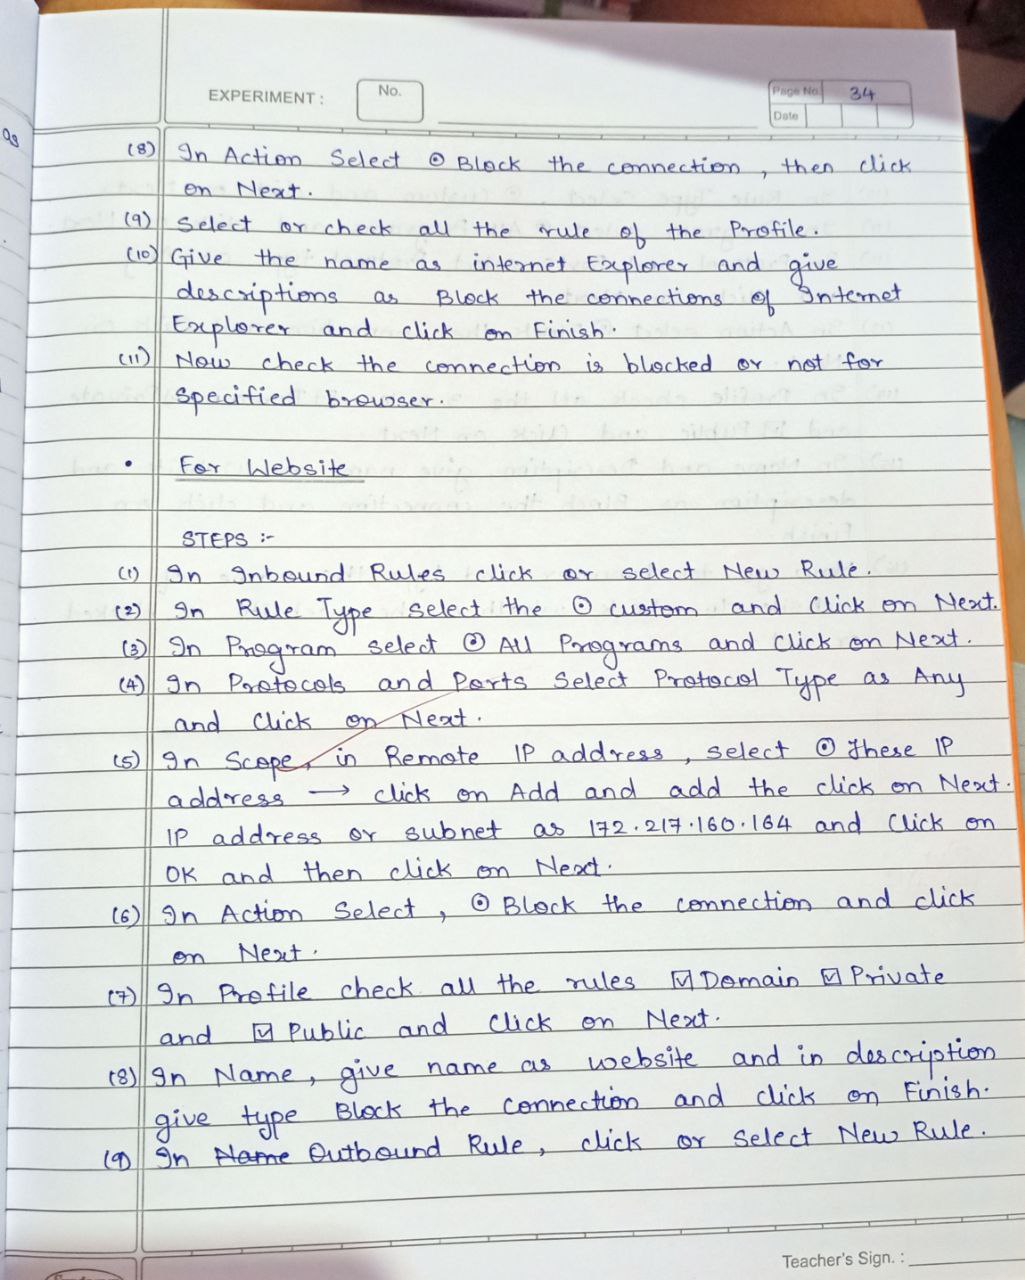 EXPERIMENT :
No.
Page No. 34
Date
as
(8) In Action Select ⊙ Block the connection , then click
on Next .
(9) Select or check all the rule of the Profile .
(10) Give the name as internet Explorer and give
descriptions as Block the connections of Internet
Explorer and click on Finish .
(11) Now check the connection is blocked or not for
specified browser .
• For Website
STEPS :-
(1) In Inbound Rules click or select New Rule .
(2) In Rule Type select the ⊙ custom and Click on Next.
(3) In Program select ⊙ All Programs and Click on Next .
(4) In Protocols and Ports Select Protocol Type as Any
and Click on Next .
(5) In Scope, in Remote IP address , select ⊙ These IP
address → click on Add and add the click on Next .
IP address or subnet as 172.217.160.164 and Click on
OK and then click on Next .
(6) In Action Select , ⊙ Block the connection and click
on Next .
(7) In Profile check all the rules ☑ Domain ☑ Private
and ☑ Public and Click on Next .
(8) In Name , give name as website and in description
give type Block the connection and click on Finish .
(9) In Name Outbound Rule , click or Select New Rule .
Teacher's Sign. :